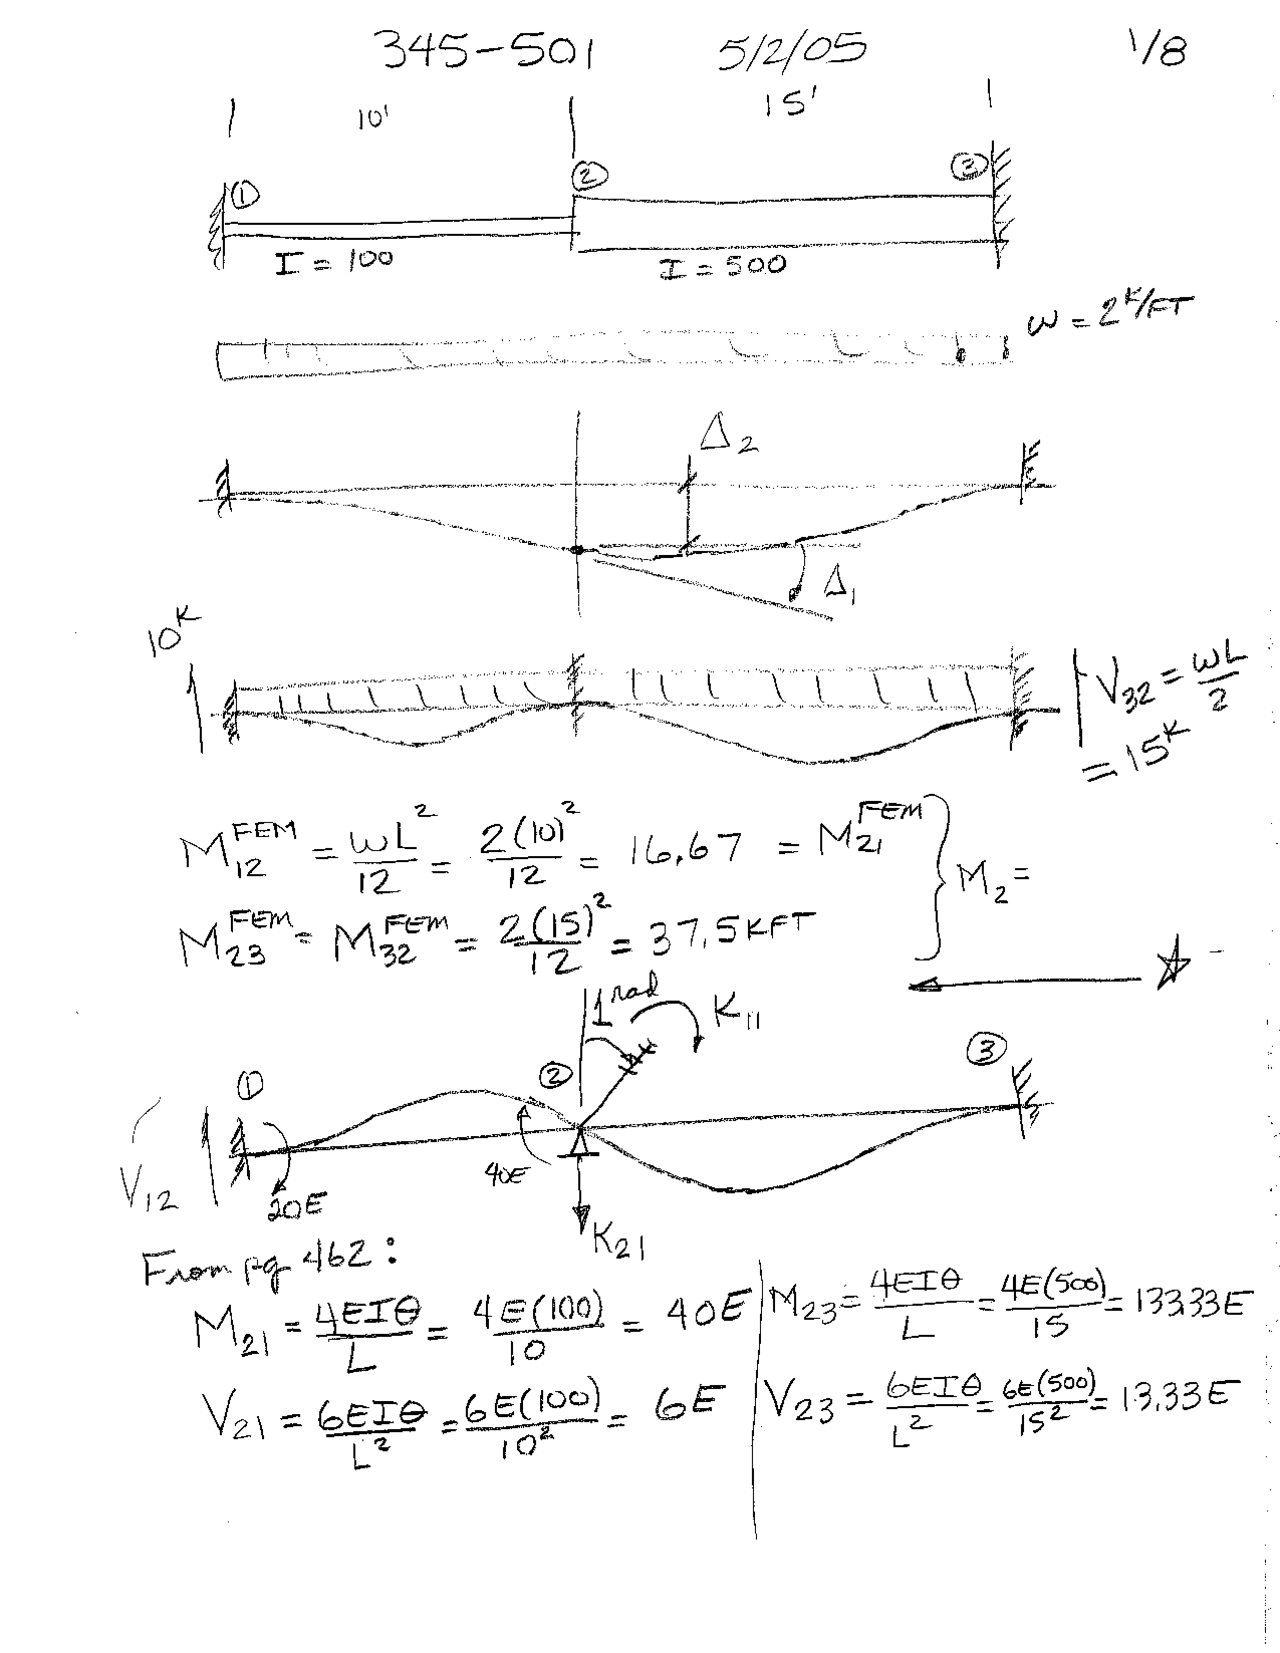 345-501 5/2/05 1/8
10' 15'
① ② ③
I = 100 I = 500
w = 2 K/FT
Δ₂
Δ₁
10ᴷ
V₃₂ = wL/2
= 15ᴷ
M₁₂^FEM = wL²/12 = 2(10)²/12 = 16.67 = M₂₁^FEM } M₂ =
M₂₃^FEM = M₃₂^FEM = 2(15)²/12 = 37.5 KFT
1 rad K₁₁
① ② ③
V₁₂ 20E 40E
K₂₁
From pg 462:
M₂₁ = 4EIθ/L = 4E(100)/10 = 40E M₂₃ = 4EIθ/L = 4E(500)/15 = 133.33E
V₂₁ = 6EIθ/L² = 6E(100)/10² = 6E V₂₃ = 6EIθ/L² = 6E(500)/15² = 13.33E